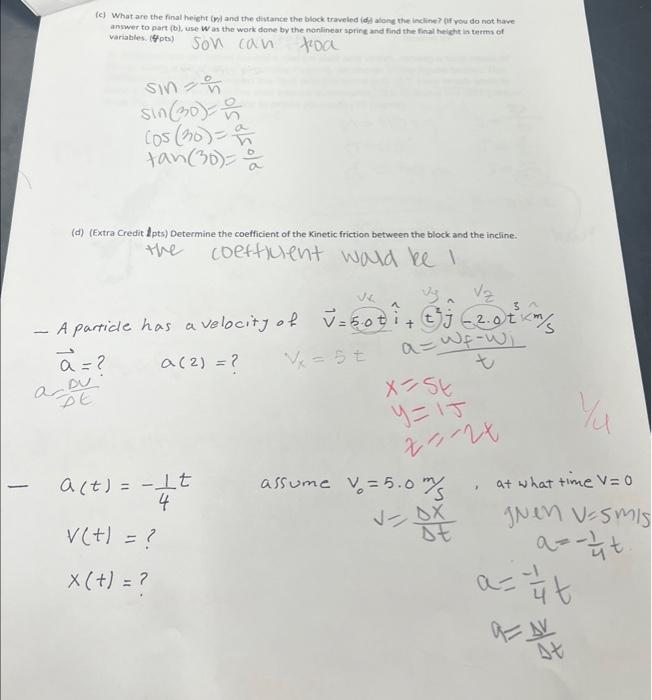 (c) What are the final height (y₂) and the distance the block traveled (d₂) along the incline? (If you do not have
answer to part (b), use W as the work done by the nonlinear spring and find the final height in terms of
variables. (4pts)
soh cah toa
sin = o/h
sin(30) = o/h
cos(30) = a/h
tan(30) = o/a
(d) (Extra Credit 1pts) Determine the coefficient of the Kinetic friction between the block and the incline.
the coefficient wald be 1
Vx Vy Vz
– A particle has a velocity of v⃗ = 5.0t î + t² ĵ – 2.0t³ k̂ m/s
a⃗ = ? a(2) = ? Vx = 5t a = (Wf - Wi)/t
a = DV/Dt
x = 5t
y = 1J
z = -2t
1/4
– a(t) = -1/4 t assume V₀ = 5.0 m/s , at what time V=0
V = Δx/Δt given V=5m/s
V(t) = ? a = -1/4 t
X(t) = ? a = -1/4 t
a = ΔV/Δt